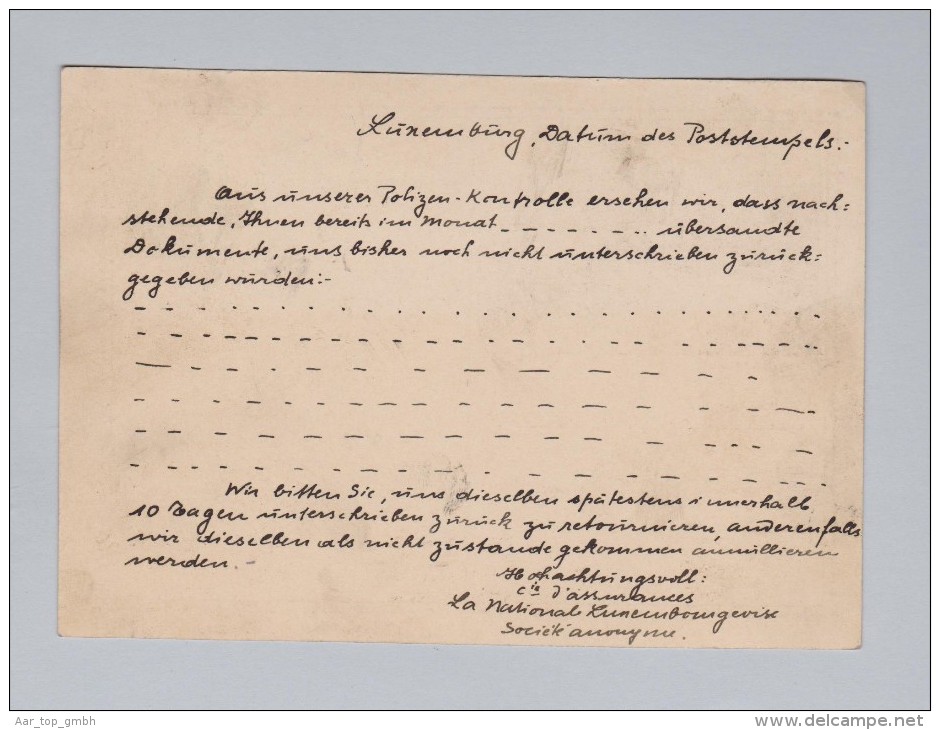 Luxemburg, Datum des Poststempels.-
Aus unserer Polizen-Kontrolle ersehen wir, dass nach=
stehende, Ihnen bereits im Monat _ _ _ _ _ _ . . übersandte
Dokumente, uns bisher noch nicht unterschrieben zurück=
gegeben wurden:-
Wir bitten Sie, uns dieselben spätestens innerhalb
10 Tagen unterschrieben zurück zu retournieren, anderenfalls
wir dieselben als nicht zustande gekommen annullieren
werden.-
Hochachtungsvoll:
Cie d'assurances
La National Luxembourgeoise
Société anonyme.
Aar_top_gmbh
delcampe.net